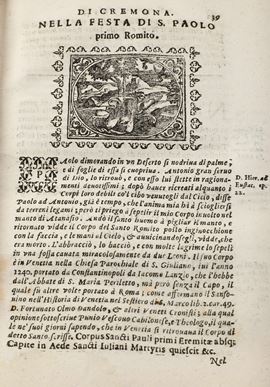 DI CREMONA. 39
NELLA FESTA DI S. PAOLO
primo Romito.
PAolo dimorando in vn Deserto si nodriua di palme,
e di foglie di essa si cuopriua. Antonio gran seruo
di Dio, lo ritrouò, e con esso lui stette in ragiona-
menti deuotissimi; dopò hauer recreati alquanto i
Corpi loro debili co'l cibo venutogli dal Cielo, disse
Paolo ad Antonio, già è tempo, che l'anima mia hà à scioglier si
da terreni legami; però ti priego à sepelir il mio Corpo inuolto nel
manto di Atanasio. Andò il santo huomo à pigliar il manto, e
ritornato vidde il Corpo del Santo Romito posto inginocchioni
con la faccia, e le mani al Cielo, & auuicinandosegli, vidde, che
era morto. L'abbracciò, lo bacciò, e con molte lagrime lo sepelì
in vna fossa cauata miracolosamente da due Leoni. Il suo Corpo
è in Venetia nella Chiesa Parochiale di S. Giuliano, iui l'anno
1240. portato da Constantinopoli da Iacomo Lanzio, che l'hebbe
dall'Abbate di S. Maria Periletto, mà però senza il Capo, il
quale fù altre volte portato à Roma; come affermano il Sanso-
uino nell'Historia di Venetia nel Sestiero
D. Fortunato Olmo &c altri Veneti Cronisti; alla qual
opinione sottoscriue Theologo, il qua-
le ne' suoi giorni fapendo, che in Venetia si ritrouaua il Corpo di
detto Santo scrisse. Corpus Sancti Pauli primi Eremitæ absq;
Capite in Aede Sancti Iuliani Martyris quiescit &c.
D. Hier. ad
Eustac. ep.
22.
Nel